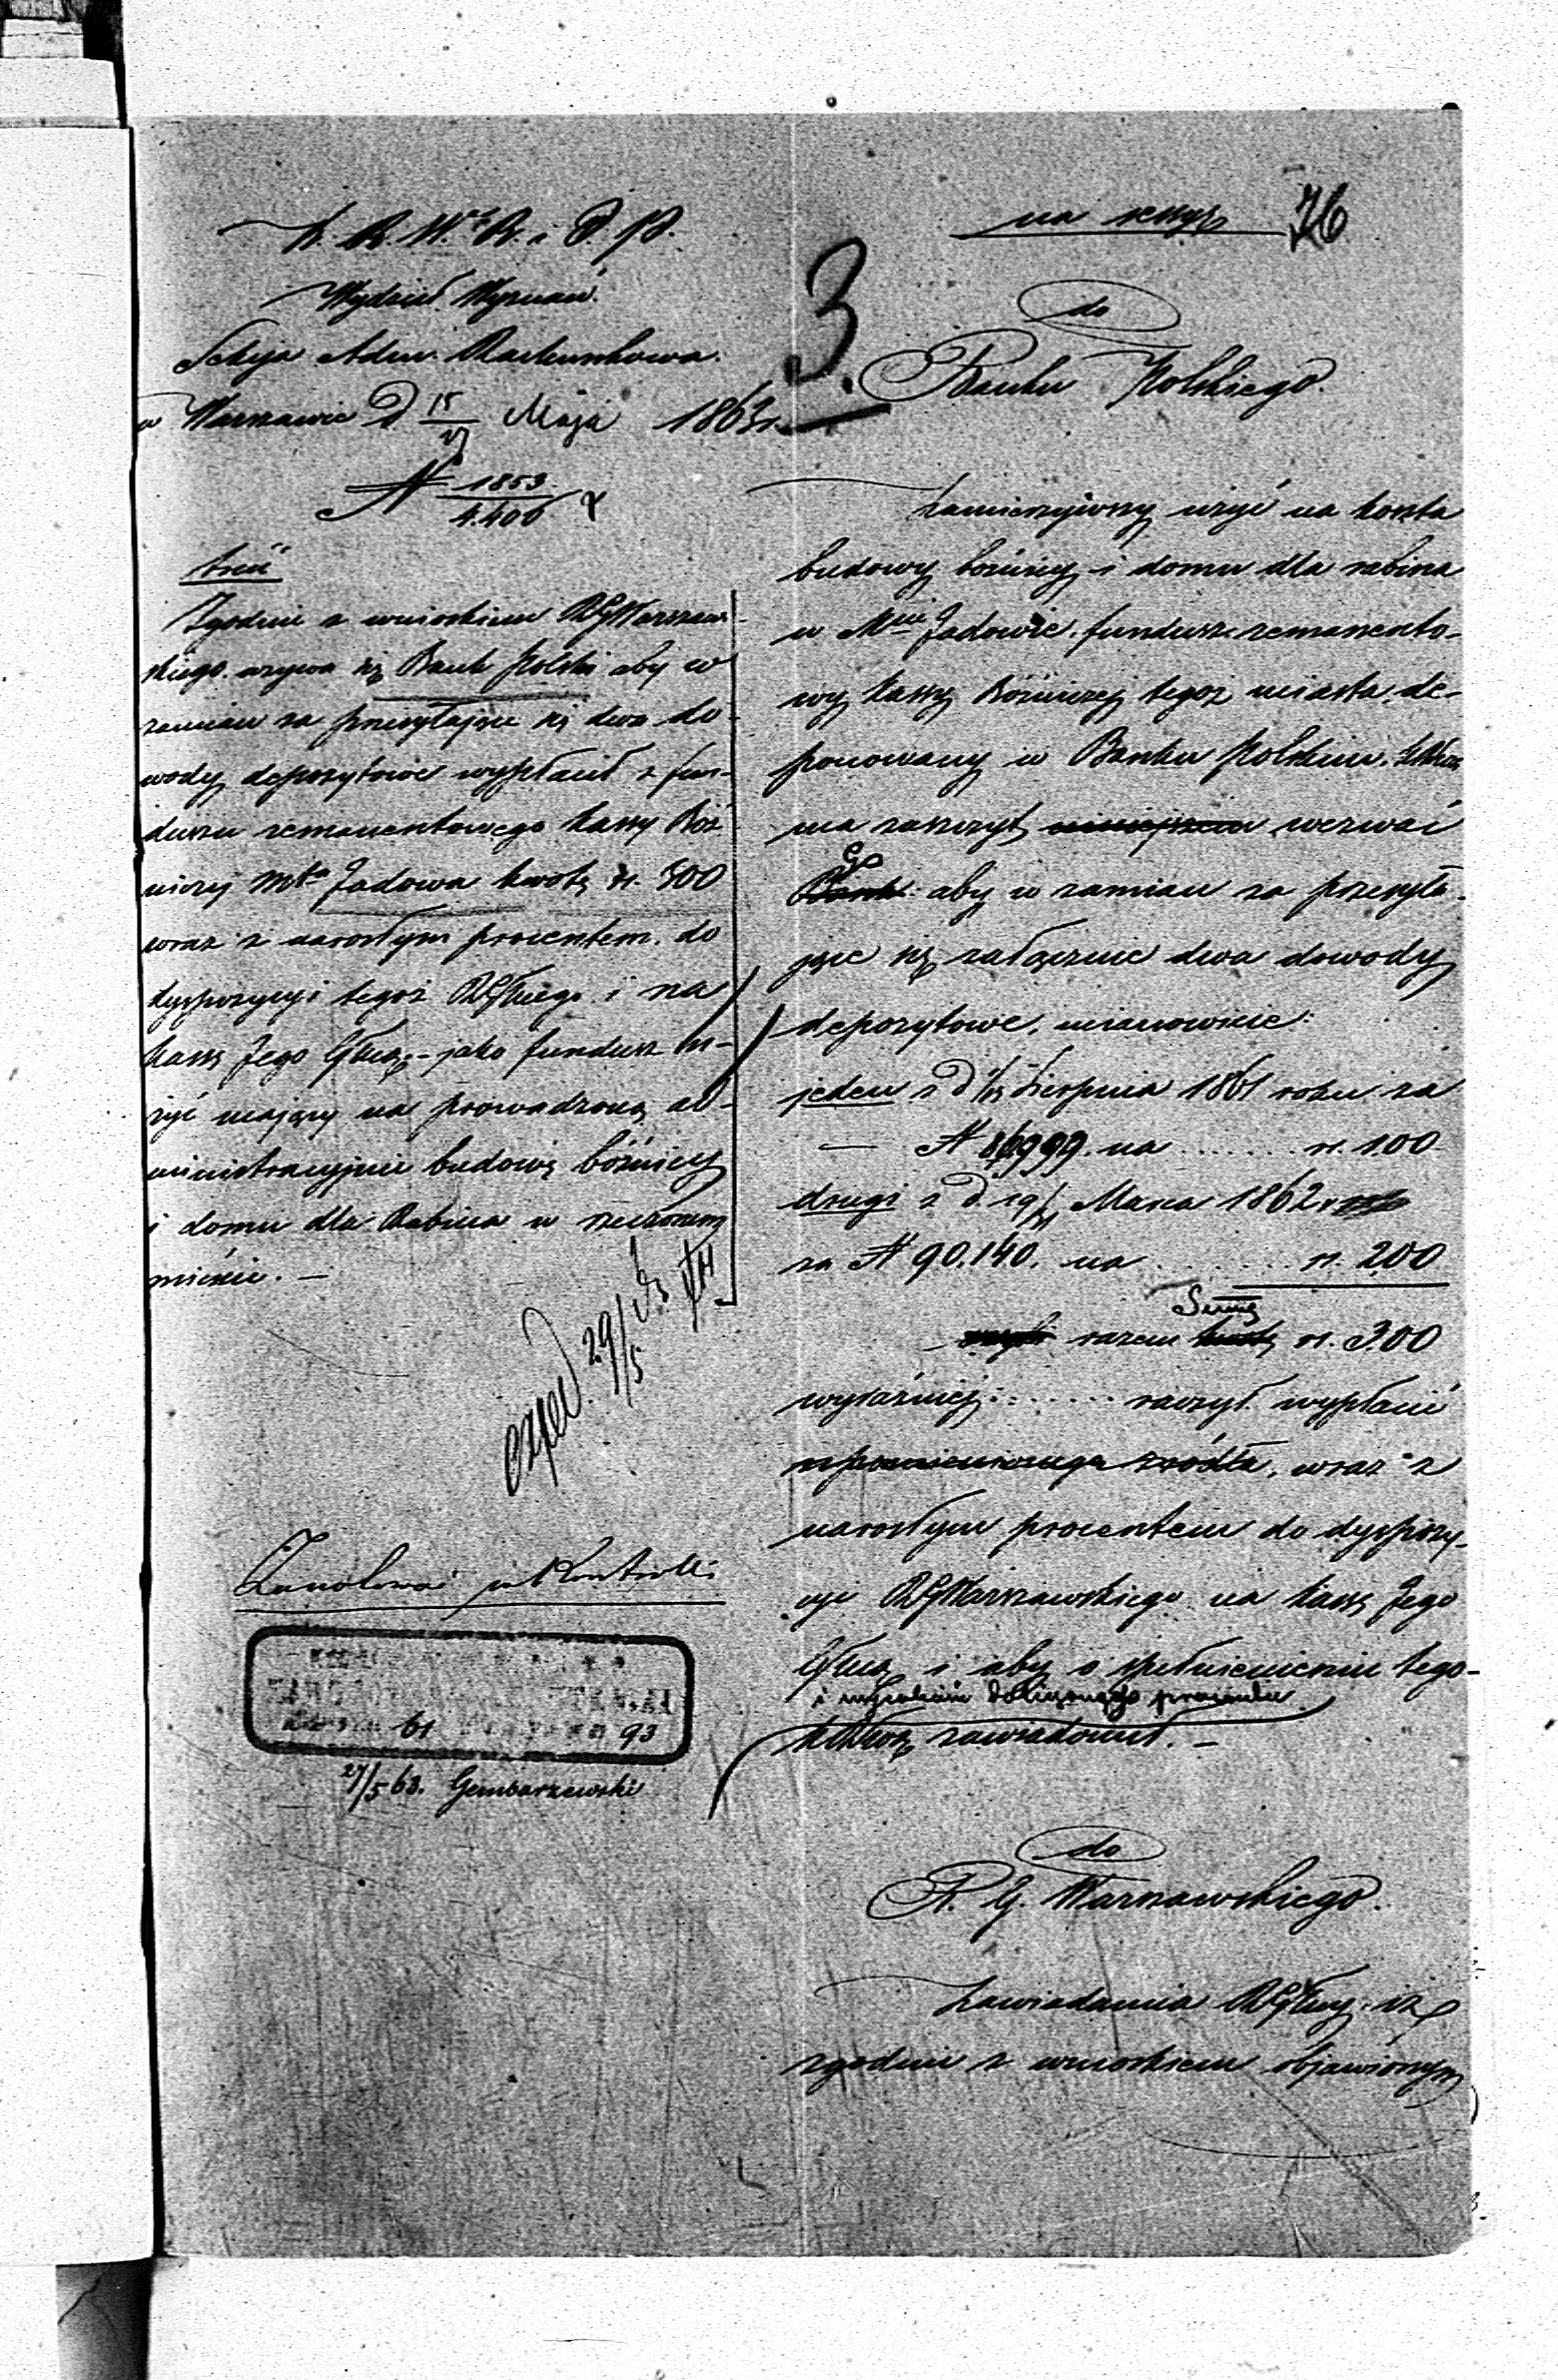 K. R. W. R. i O. P.
Wydział Wyznań.
Sekcja Adm. Rachunkowa.
w Warszawie d 15/27 Maja 1863 r.
N 1853/4.406
treść
Zgodnie z wnioskiem RGWarszaw-
skiego wzywa się Bank Polski aby w
zamian za przesyłające się dwa do-
wody depozytowe wypłacił z fun-
duszu remanentowego kassy Bóż
niczej Mta Jadowa kwotę rs. 300
wraz z narosłym procentem do
dyspozycyi tegoż RGskiego i na
kassę Jego Główną, jako fundusz u-
żyć mający na prowadzoną ad-
ministracyjnie budowę bóżnicy
i domu dla Rabina w rzeczonem
mieście. —
exped. 29/5
Zanotować w Kontrolli
61 93
27/5 63. Gembarzewski
na sessyę 76
3.
do
Banku Polskiego.
Zamierzywszy użyć na koszta
budowy bóżnicy i domu dla rabina
w Mcie Jadowie fundusz remanento-
wy kassy Bóżniczej tegoż miasta, de-
ponowany w Banku Polskim,
ma zaszczyt niniejszem wezwać
Bank aby w zamian za przesyła-
jące się załącznie dwa dowody
depozytowe, mianowicie:
jeden z d Sierpnia 1861 roku za
— N 86999 na ....... rs. 100
drugi z d. 19/ Marca 1862 r
za N 90.140. na ....... rs. 200
Sumę
razem kwotę rs. 300
wyraźniej: ....... raczył wypłacić
wspomnionego źródła, wraz z
narosłym procentem do dyspozy-
cyi RGWarszawskiego na kassę Jego
Główną i aby o spełnieniu tego-
i wysokości doliczonego procentu
zawiadomił. —
do
R. G. Warszawskiego.
Zawiadamia RG iż
zgodnie z wnioskiem objawionym